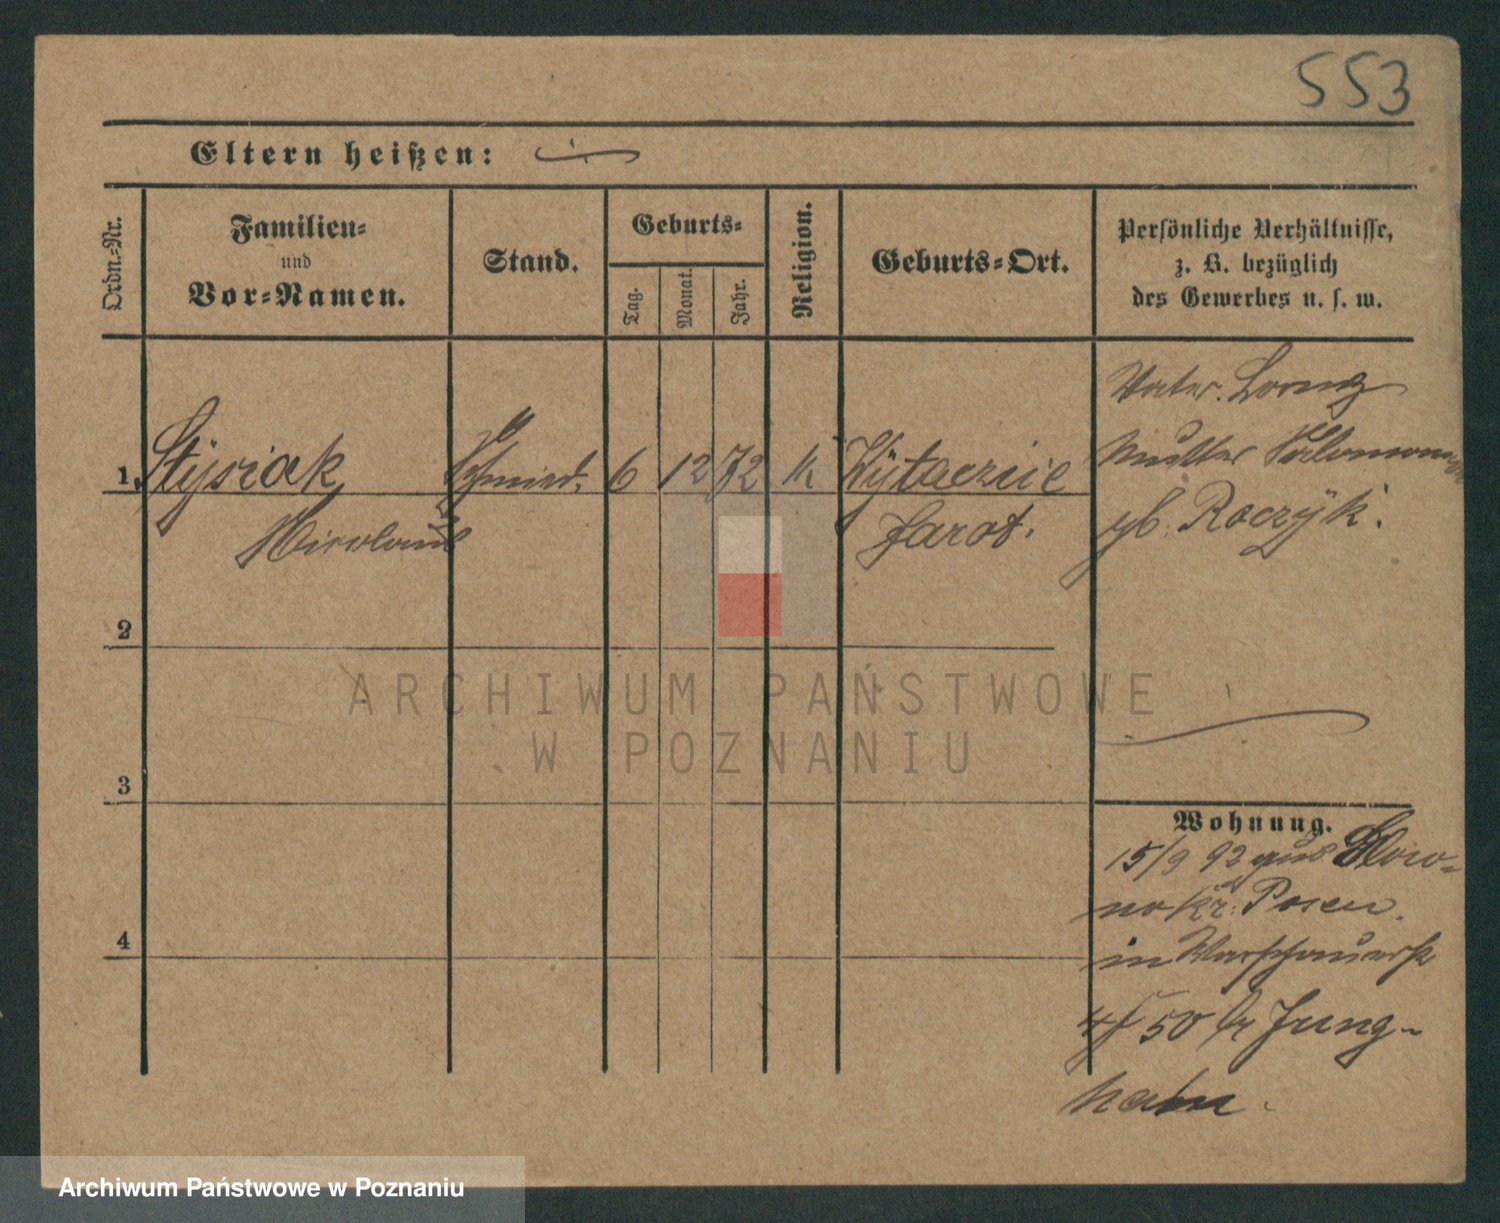 553
Eltern heißen:
Ordn.-Nr.
Familien-
und
Vor-Namen.
Stand.
Geburts-
Tag.
Monat.
Jahr.
Religion.
Geburts-Ort.
Persönliche Verhältnisse,
z. B. bezüglich
des Gewerbes u. s. w.
Vater. Lorenz
1. Stysiak Schmied. 6 12 72 k
Mutter
Nicolaus
Jarot.
gb. Roczÿk.
2
ARCHIWUM PAŃSTWOWE
W POZNANIU
3
Wohnung.
15/9 92 aus Glow-
no Kr: Posen.
in Warschauerstr
50 Jung-
hahn.
4
Archiwum Państwowe w Poznaniu